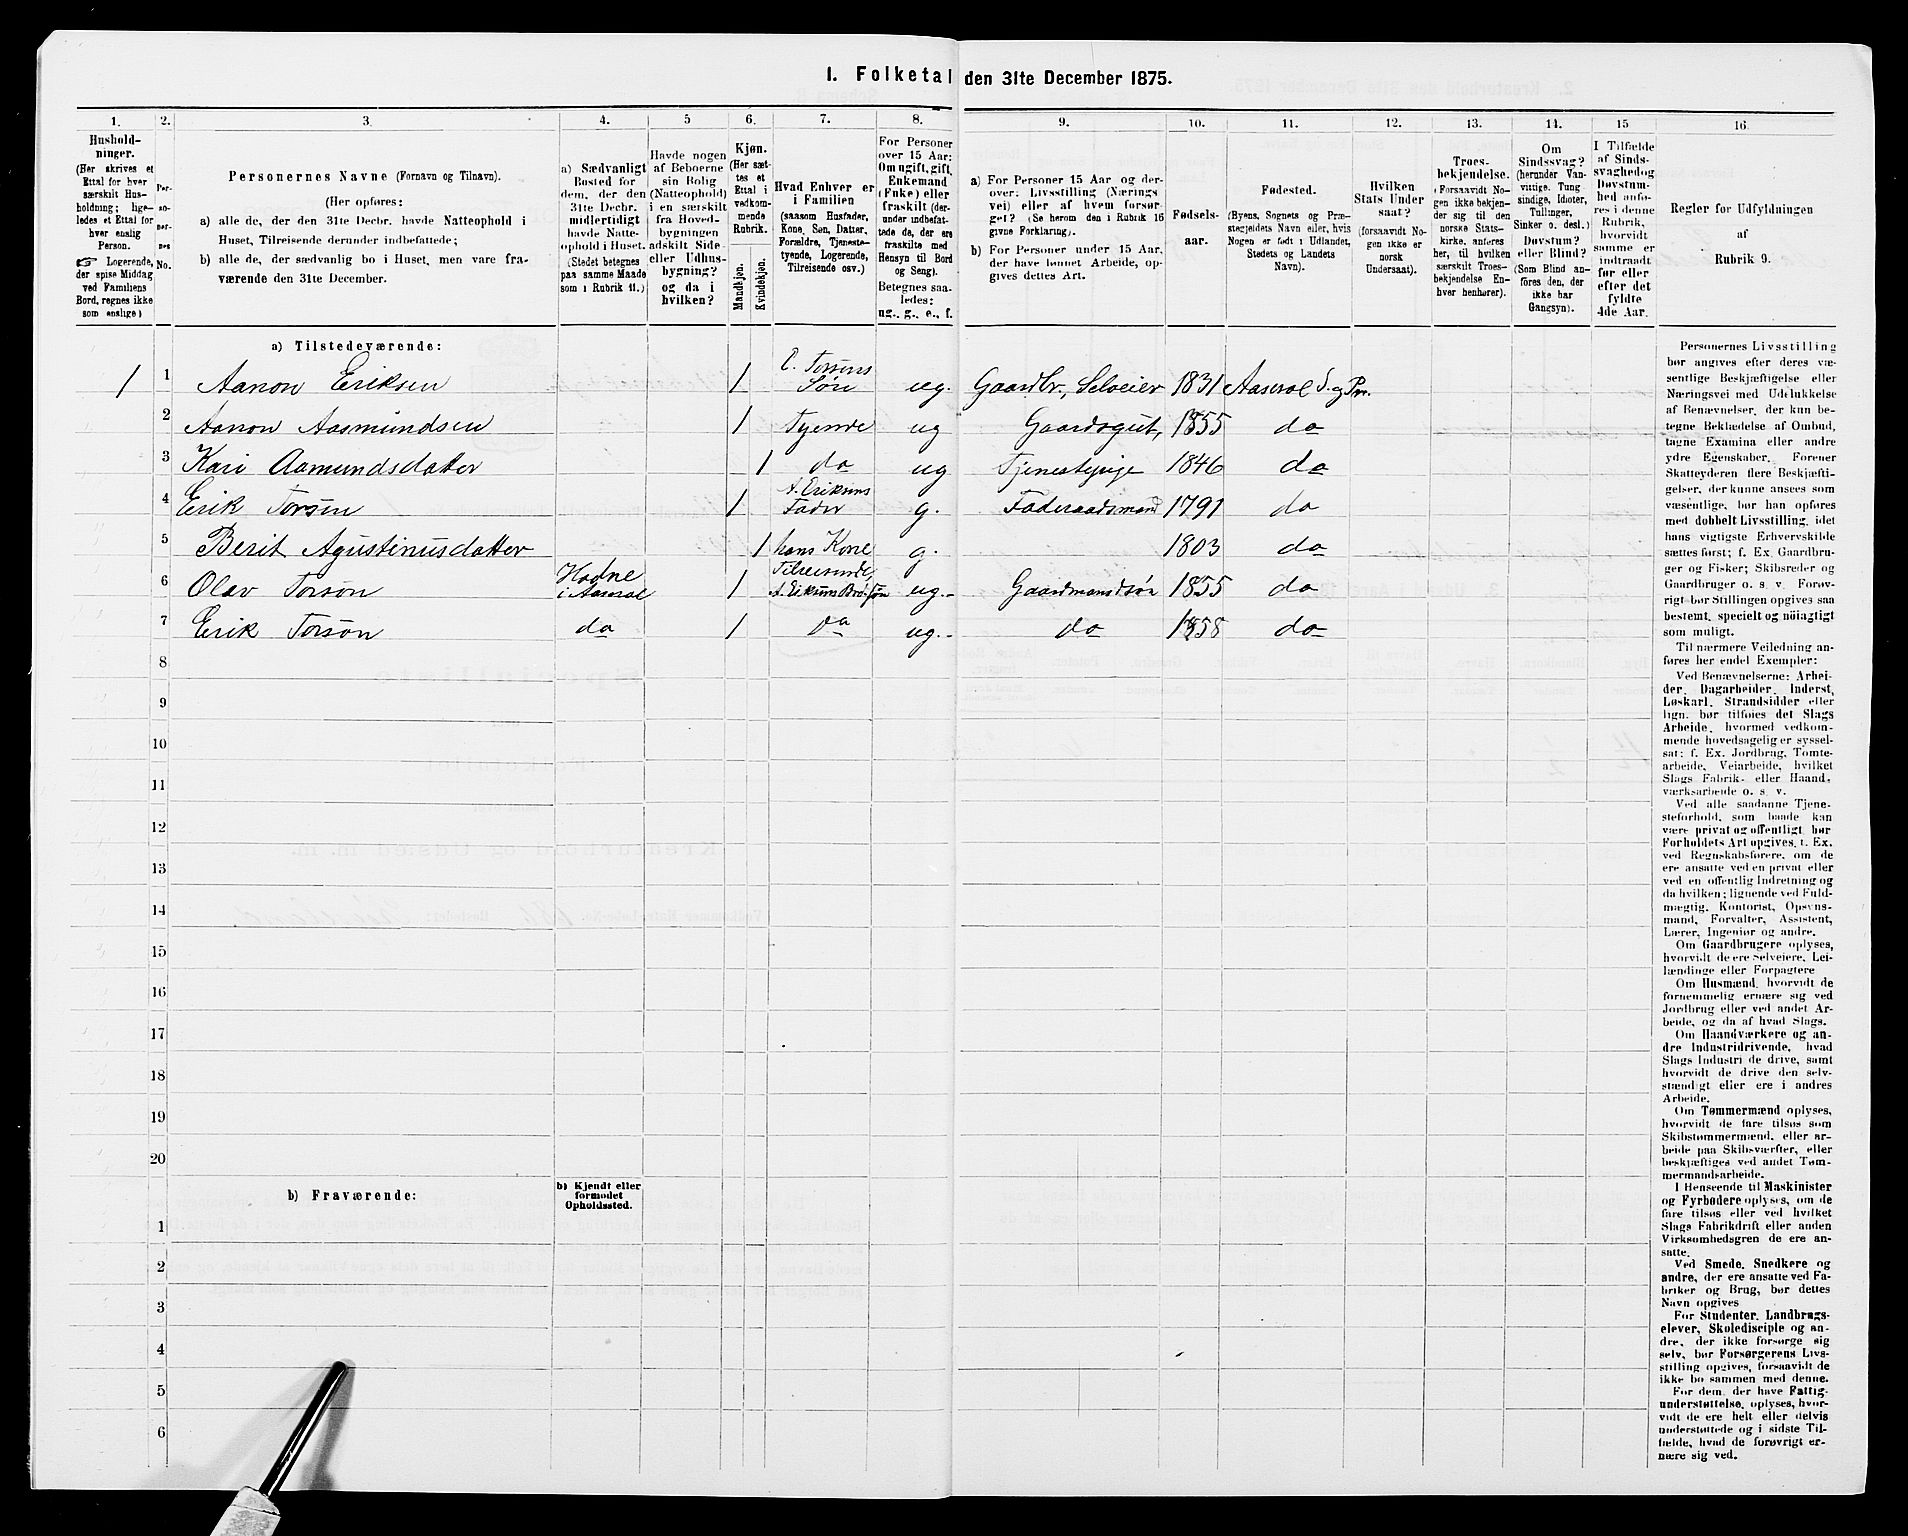 1. Folketal den 31te December 1875.
1.
Hushold-
ninger.
(Her skrives et
Ettal for hver
særskilt Hus-
holdning; lige-
ledes et Ettal for
hver enslig
Person.
Logerende,
der spise Middag
ved Familiens
Bord, regnes ikke
som enslige)
2.
Per-
so-
ner-
nes
No.
3.
Personernes Navne (Fornavn og Tilnavn).
(Her opføres:
a) alle de, der den 31te Decbr. havde Natteophold i
Huset, Tilreisende derunder indbefattede;
b) alle de, der sædvanlig bo i Huset, men vare fra-
værende den 31te December.
4.
a) Sædvanligt
Bosted for
dem, der den
31te Decbr.
midlertidigt
havde Natte-
ophold i Huset.
(Stedet betegnes
paa samme Maade
som i Rubrik 11.)
5
Havde nogen
af Beboerne
sin Bolig
(Natteophold)
i en særskilt
fra Hoved-
bygningen
adskilt Side-
eller Udhus-
bygning?
og da i
hvilken?
6.
Kjøn.
(Her sæt-
tes et
Ettal i
vedkom-
mende
Rubrik.
Mandkjøn.
Kvindekjøn.
7.
Hvad Enhver er
i Familien
(saasom Husfader,
Kone, Søn, Datter,
Forældre, Tjeneste-
tyende, Logerende,
Tilreisende osv.)
8.
For Personer
over 15 Aar:
Om ugift, gift,
Enkemand
(Enke) eller
fraskilt (der-
under indbefat-
tede de, der ere
fraskilte med
Hensyn til Bord
og Seng).
Betegnes saa-
ledes:
ug., g., e., f.
9.
a) For Personer 15 Aar og der-
over: Livsstilling (Nærings-
vei) eller af hvem forsør-
get? (Se herom den i Rubrik 16
givne Forklaring).
b) For Personer under 15 Aar,
der have lønnet Arbeide, op-
gives dettes Art.
10.
Fødsels-
aar.
11.
Fødested.
(Byens, Sognets og Præ-
stegjeldets Navn eller, hvis
Nogen er født i Udlandet,
Stedets og Landets
Navn).
12.
Hvilken
Stats Under
saat?
(forsaavidt No-
gen ikke er
norsk
Undersaat).
13.
Troes-
bekjendelse.
(Forsaavidt No-
gen ikke bekjen-
der sig til den
norske Stats-
kirke, anføres
her, til hvilken
særskilt Troes-
bekjendelse En-
hver henhører).
14.
Om
Sindssvag?
(herunder Van-
vittige, Tung-
sindige, Idioter,
Tullinger,
Sinker o. desl.)
Døvstum?
eller Blind?
(Som Blind an-
føres den, der
ikke har
Gangsyn).
15
I Tilfælde
af Sinds-
svaghed og
Døvstum-
hed anfø-
res i denne
Rubrik,
hvorvidt
samme er
indtraadt
før eller
efter det
fyldte
4de Aar.
16.
Regler for Udfyldningen
af
Rubrik 9.
a) Tilstedeværende:
1 1 Aanon Eriksen 1 E. Torsens Søn ug. Gaardbr., Selveier 1831 Aaseral S. og Pr.
2 Aanon Aasmundsen 1 Tyende ug Gaardsgut, 1855 do
3 Kari Aamundsdatter 1 do ug Tjenestepige 1846 do
4 Erik Torsen 1 A. Eriksens Fader g. Føderaadsmand 1791 do
5 Berit Agustinusdatter 1 hans Kone g. 1803 do
6 Olav Torsøn Hadne i Aaseral 1 Tilreisende, A. Eriksens Brorsøn ug. Gaardmandsøn 1855 do
7 Erik Torsøn do 1 do ug. do 1858 do
8
9
10
11
12
13
14
15
16
17
18
19
20
b) Fraværende:
b) Kjendt eller
formodet
Opholdssted.
1
2
3
4
5
6
Personernes Livsstilling
bør angives efter deres væ-
sentlige Beskjæftigelse eller
Næringsvei med Udelukkelse
af Benævnelser, der kun be-
tegne Beklædelse af Ombud,
tagne Examina eller andre
ydre Egenskaber. Forener
Skatteyderen flere Beskjæfti-
gelser, der kunne ansees som
væsentlige, bør han opføres
med dobbelt Livsstilling, idet
hans vigtigste Erhvervskilde
sættes først; f. Ex. Gaardbru-
ger og Fisker; Skibsreder og
Gaardbruger o. s. v. Forøv-
rigt bør Stillingen opgives saa
bestemt, specielt og nøiagtigt
som muligt.
Til nærmere Veiledning an-
føres her endel Exempler:
Ved Benævnelserne: Arbei-
der, Dagarbeider, Inderst,
Løskarl, Strandsidder eller
lign. bør tilføies det Slags
Arbeide, hvormed vedkom-
mende hovedsagelig er syssel-
sat: f. Ex. Jordbrug, Tomte-
arbeide, Veiarbeide, hvilket
Slags Fabrik- eller Haand-
værksarbeide o. s. v.
Ved alle saadanne Tjene-
steforhold, som baade kan
være privat og offentligt, bør
Forholdets Art opgives, t. Ex.
ved Regnskabsførere, om de
ere ansatte ved en privat eller
ved en offentlig Indretning og
da hvilken; lignende ved Fuld-
mægtig, Kontorist, Opsyns-
mand, Forvalter, Assistent,
Lærer, Ingeniør og andre.
Om Gaardbrugere oplyses,
hvorvidt de ere Selveiere, Lei-
lændinge eller Forpagtere
Om Husmænd, hvorvidt de
fornemmelig ernære sig ved
Jordbrug eller ved andet Ar-
beide, og da af hvad Slags.
Om Haandværkere og an-
dre Industridrivende, hvad
Slags Industri de drive, samt
hvorvidt de drive den selv-
stændigt eller ere i andres
Arbeide.
Om Tømmermænd oplyses,
hvorvidt de fare tilsøs som
Skibstømmermænd, eller ar-
beide paa Skibsværfter, eller
beskjæftiges ved andet Tøm-
mermandsarbeide.
I Henseende til Maskinister
og Fyrbødere oplyses, om de
fare tilsøs eller ved hvilket
Slags Fabrikdrift eller anden
Virksomhedsgren de ere an-
satte.
Ved Smede, Snedkere og
andre, der ere ansatte ved Fa-
briker og Brug, bør dettes
Navn opgives
For Studenter, Landbrugs-
elever, Skoledisciple og an-
dre, der ikke forsørge sig
selv, bør Forsørgerens Livs-
stilling opgives, forsaavidt de
ikke bo sammen med denne.
For dem, der have Fattig-
understøttelse, oplyses, hvor-
vidt de ere helt eller delvis
understøttede og i sidste Til-
fælde, hvad de forøvrigt er-
nære sig ved.